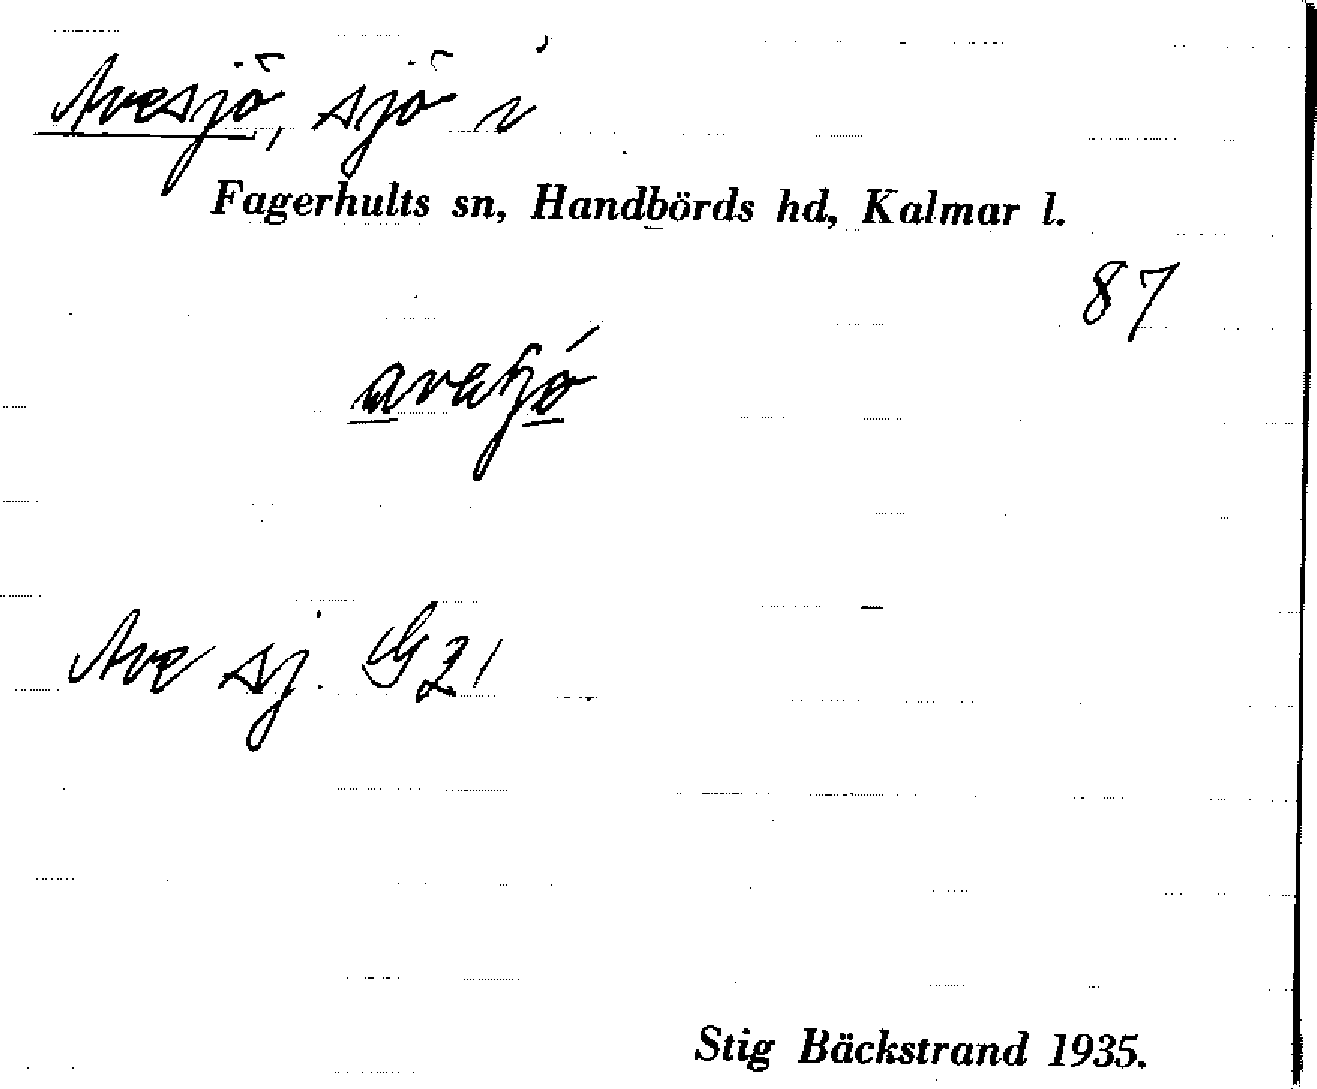 Avesjö, sjö i
Fagerhults sn, Handbörds hd, Kalmar l.
87
Ave sj. G 21
Stig Bäckstrand 1935.